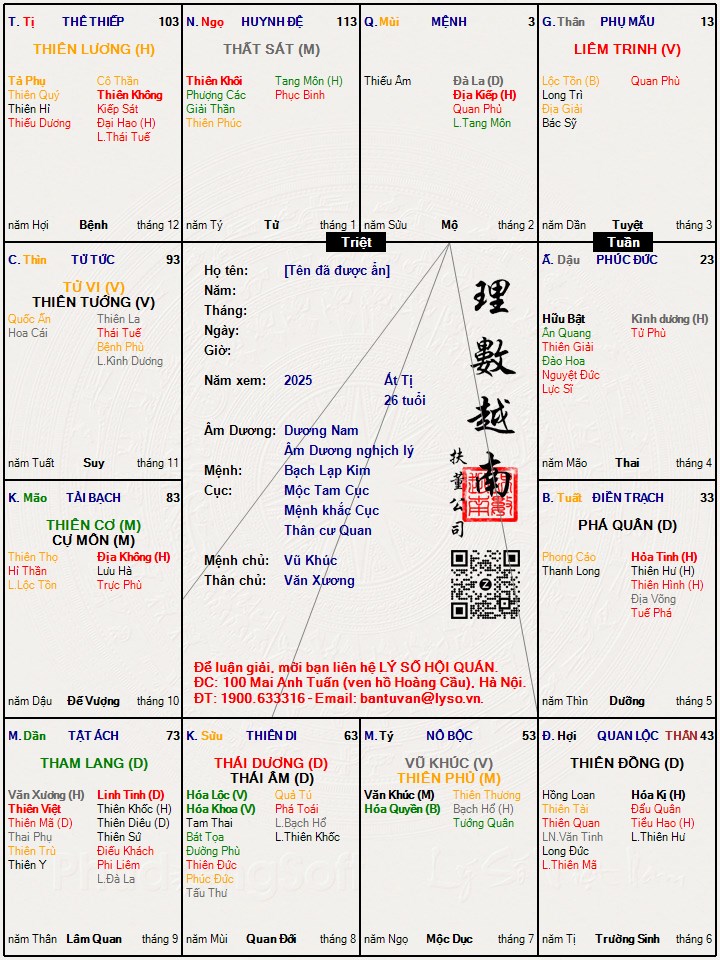 T. Tị THÊ THIẾP 103
THIÊN LƯƠNG (H)
Tả Phụ Cô Thần
Thiên Quý Thiên Không
Thiên Hỉ Kiếp Sát
Thiếu Dương Đại Hao (H)
L.Thái Tuế
năm Hợi Bệnh tháng 12
N. Ngọ HUYNH ĐỆ 113
THẤT SÁT (M)
Thiên Khôi Tang Môn (H)
Phượng Các Phục Binh
Giải Thần
Thiên Phúc
năm Tý Tử tháng 1
Q. Mùi MỆNH 3
Thiếu Âm Đà La (D)
Địa Kiếp (H)
Quan Phủ
L.Tang Môn
năm Sửu Mộ tháng 2
G. Thân PHỤ MẪU 13
LIÊM TRINH (V)
Lộc Tồn (B) Quan Phù
Long Trì
Địa Giải
Bác Sỹ
năm Dần Tuyệt tháng 3
Triệt
Tuần
C. Thìn TỬ TỨC 93
TỬ VI (V)
THIÊN TƯỚNG (V)
Quốc Ấn Thiên La
Hoa Cái Thái Tuế
Bệnh Phù
L.Kình Dương
năm Tuất Suy tháng 11
Họ tên: [Tên đã được ẩn]
Năm:
Tháng:
Ngày:
Giờ:
Năm xem: 2025 Ất Tị
26 tuổi
Âm Dương: Dương Nam
Âm Dương nghịch lý
Mệnh: Bạch Lạp Kim
Cục: Mộc Tam Cục
Mệnh khắc Cục
Thân cư Quan
Mệnh chủ: Vũ Khúc
Thân chủ: Văn Xương
理數越南
扶董公司
Để luận giải, mời bạn liên hệ LÝ SỐ HỘI QUÁN.
ĐC: 100 Mai Anh Tuấn (ven hồ Hoàng Cầu), Hà Nội.
ĐT: 1900.633316 - Email: bantuvan@lyso.vn.
Ấ. Dậu PHÚC ĐỨC 23
Hữu Bật Kình dương (H)
Ân Quang Tử Phù
Thiên Giải
Đào Hoa
Nguyệt Đức
Lực Sĩ
năm Mão Thai tháng 4
K. Mão TÀI BẠCH 83
THIÊN CƠ (M)
CỰ MÔN (M)
Thiên Thọ Địa Không (H)
Hỉ Thần Lưu Hà
L.Lộc Tồn Trực Phù
năm Dậu Đế Vượng tháng 10
B. Tuất ĐIỀN TRẠCH 33
PHÁ QUÂN (D)
Phong Cáo Hỏa Tinh (H)
Thanh Long Thiên Hư (H)
Thiên Hình (H)
Địa Võng
Tuế Phá
năm Thìn Dưỡng tháng 5
M. Dần TẬT ÁCH 73
THAM LANG (D)
Văn Xương (H) Linh Tinh (D)
Thiên Việt Thiên Khốc (H)
Thiên Mã (D) Thiên Diêu (D)
Thai Phụ Thiên Sứ
Thiên Trù Điếu Khách
Thiên Y Phi Liêm
L.Đà La
năm Thân Lâm Quan tháng 9
K. Sửu THIÊN DI 63
THÁI DƯƠNG (D)
THÁI ÂM (D)
Hóa Lộc (V) Quả Tú
Hóa Khoa (V) Phá Toái
Tam Thai L.Bạch Hổ
Bát Tọa L.Thiên Khốc
Đường Phù
Thiên Đức
Phúc Đức
Tấu Thư
năm Mùi Quan Đới tháng 8
M. Tý NÔ BỘC 53
VŨ KHÚC (V)
THIÊN PHỦ (M)
Văn Khúc (M) Thiên Thương
Hóa Quyền (B) Bạch Hổ (H)
Tướng Quân
năm Ngọ Mộc Dục tháng 7
Đ. Hợi QUAN LỘC THÂN 43
THIÊN ĐỒNG (D)
Hồng Loan Hóa Kị (H)
Thiên Tài Đẩu Quân
Thiên Quan Tiểu Hao (H)
LN.Văn Tinh L.Thiên Hư
Long Đức
L.Thiên Mã
năm Tị Trường Sinh tháng 6